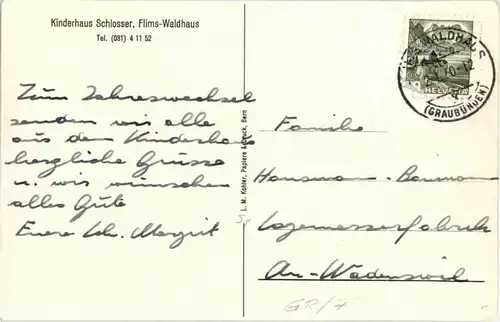 Kinderhaus Schlosser, Flims-Waldhaus
Tel. (081) 4 11 52
Zum Jahreswechsel
senden wir alle
aus dem Kinderhaus
herzliche Grüsse
u. wir wünschen
alles Gute
Eure Sch. Margrit
L. M. Kohler, Papiere & Druck, Bern
WALDHAUS
(GRAUBÜNDEN)
HELVETIA
Familie
Hausmann-Baumann
Lagermesserfabrik
Au-Wädenswil
GR/7